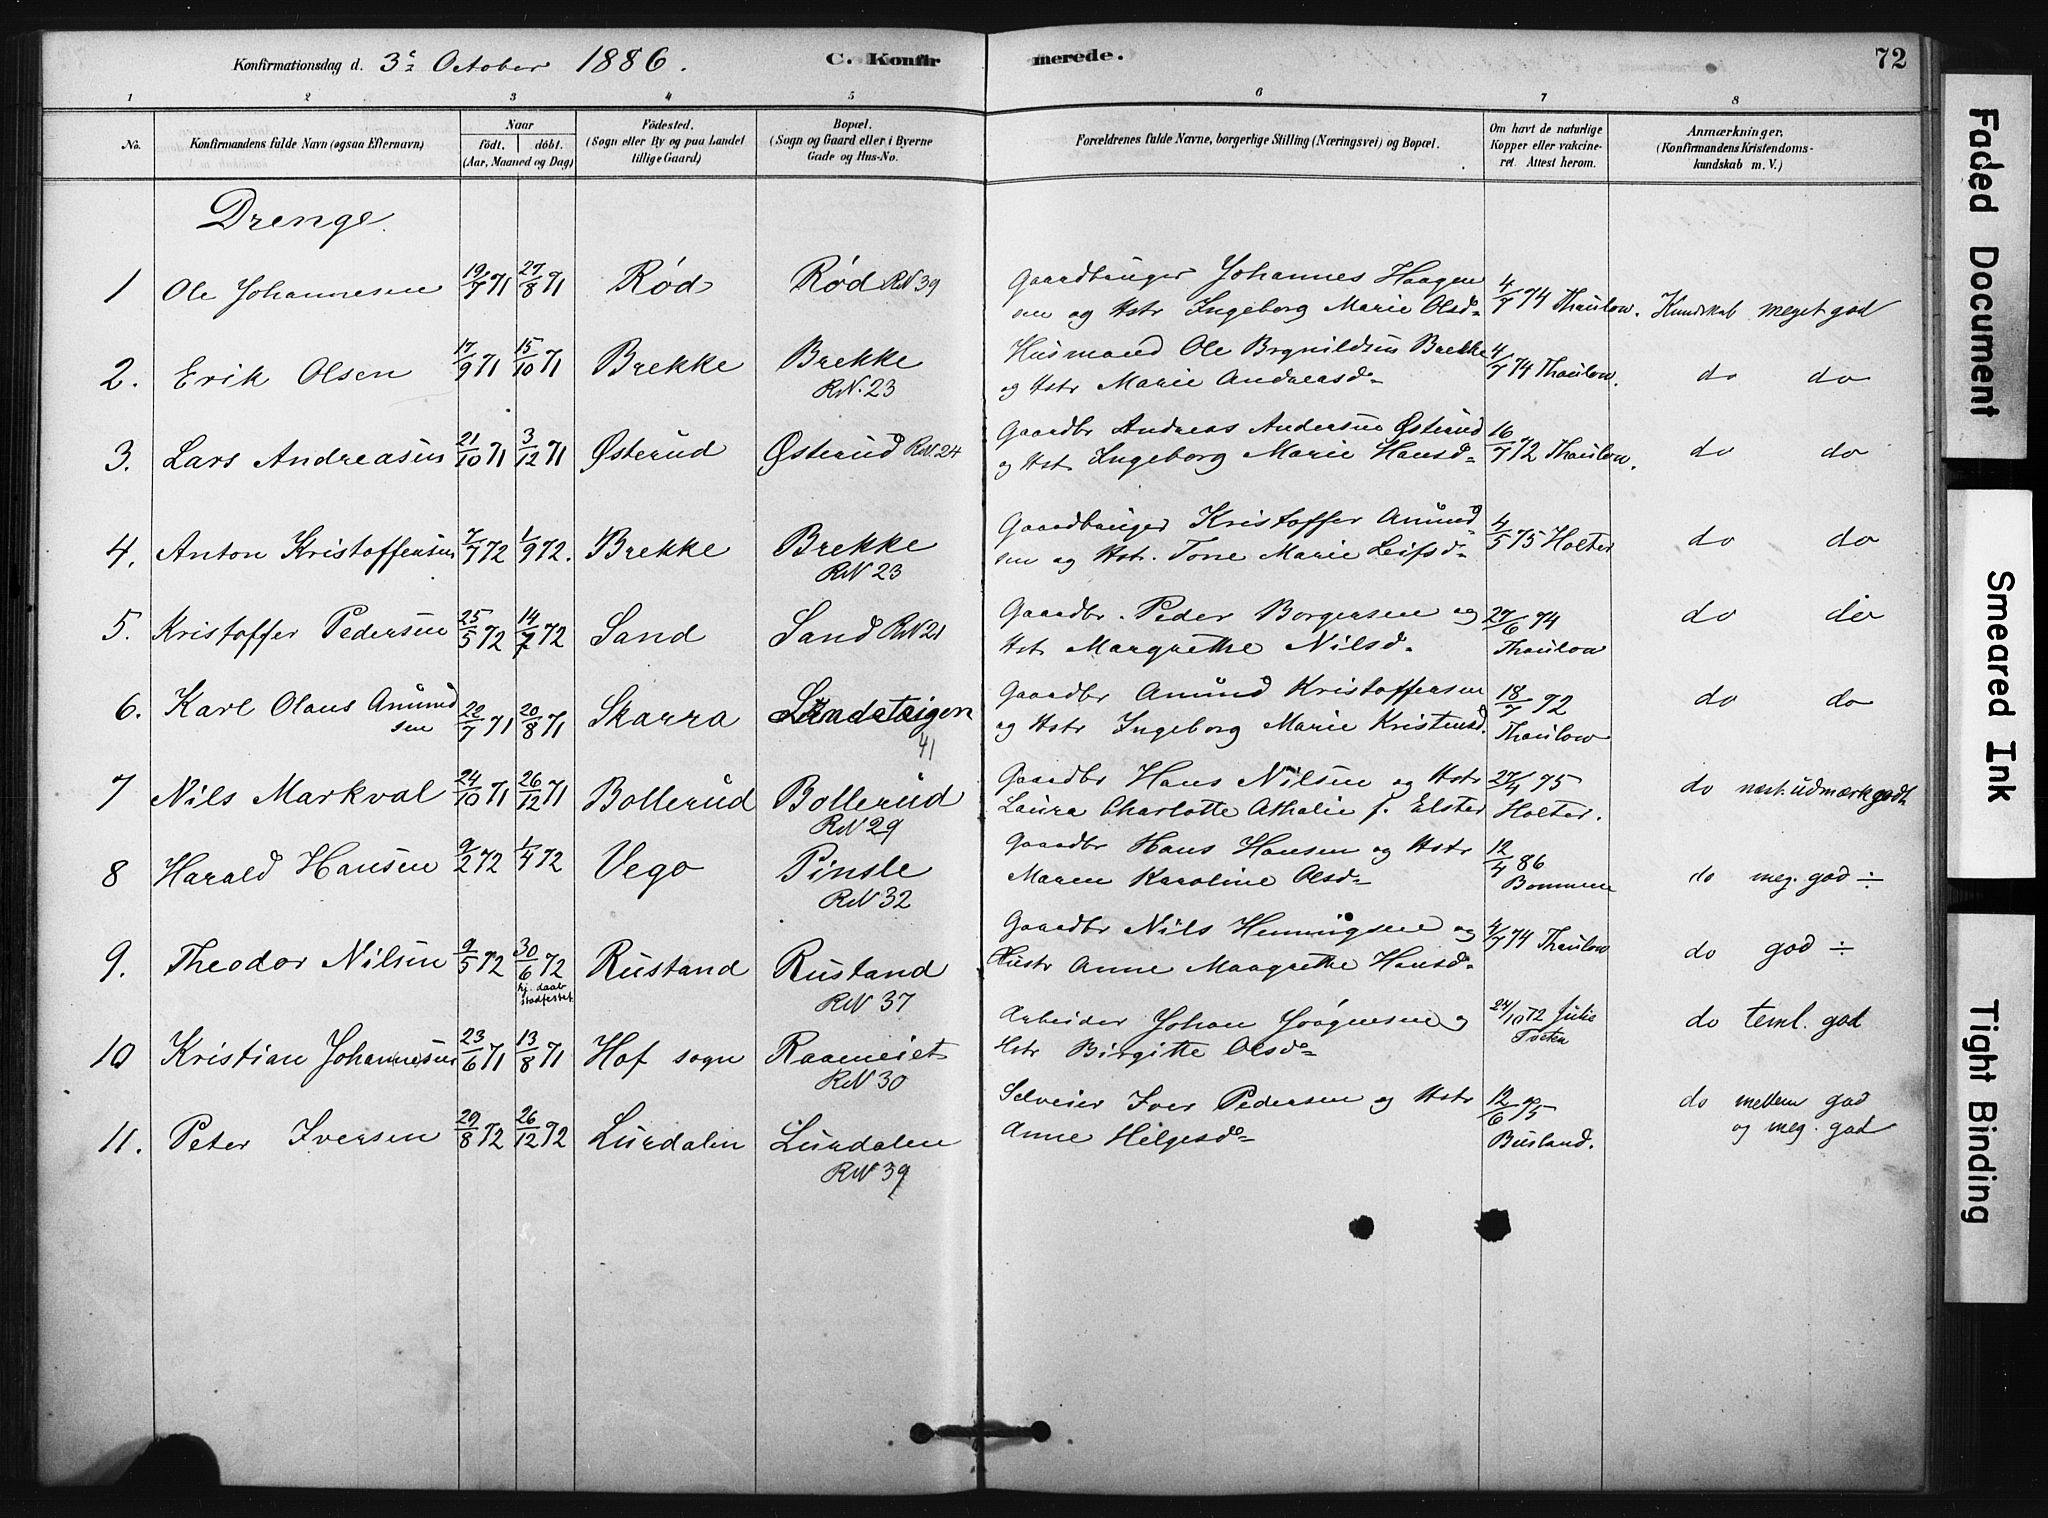 Konfirmationsdag d. 3die October 1886. C. Konfirmerede. 72
1 2 3 4 5 6 7 8
No. Konfirmandens fulde Navn (ogsaa Efternavn) Naar Födt. döbt. (Aar, Maaned og Dag) Födested. (Sogn eller By og paa Landet tillige Gaard) Bopæl. (Sogn og Gaard eller i Byerne Gade og Hus-No. Forældrenes fulde Navne, borgerlige Stilling (Næringsvei) og Bopæl. Om havt de naturlige Kopper eller vakcineret. Attest herom. Anmærkninger, (Konfirmandens Kristendomskundskab m. V.)
Drenge.
1 Ole Johannesen 19/7 71 27/8 71 Rød Rød RN 39 Gaardbruger Johannes Haagensen og Hstr Ingeborg Marie Olsd. 4/7 74 Thaulow. Kundskab meget god
2. Erik Olsen 17/9 71 15/10 71 Brekke Brekke RN. 23 Husmand Ole Brynildsen Brekke og Hstr Marie Andreasd. 4/7 74 Thaulow. do do
3. Lars Andreasen 21/10 71 3/12 71 Østerud Østerud RN. 24 Gaardbr Andreas Andersen Østerud og Hst. Ingeborg Marie Hansd. 16/7 72 Thaulow. do do
4. Anton Kristoffersen 7/7 72 1/9 72. Brekke Brekke RN 23 Gaardbruger Kristoffer Amundsen og Hstr. Tone Marie Leifsd. 4/5 75 Holter do do
5. Kristoffer Pedersen 25/5 72 14/7 72 Sand Sand RN 21 Gaardbr. Peder Borgersen og Hstr Margrethe Nilsd. 27/6 74 Thaulow do do
6. Karl Olaus Amundsen 22/7 71 20/8 71 Skarra Sandsteigen 41 Gaardbr Amund Kristoffersen og Hstr Ingeborg Marie Kristensd. 18/7 72 Thaulow do do
7 Nils Markval 24/10 71 26/12 71 Bollerud Bollerud RN 29 Gaardbr Hans Nilsen og Hstr Laura Charlotte Athalie f. Elster 27/4 75 Holter. do næst. udmærk godt
8 Harald Hansen 9/2 72 1/4 72 Vego Pinsle RN 32 Gaardbr Hans Hansen og Hstr Maren Karoline Olsd. 12/4 86 Bommen do meg. god ÷
9. Theodor Nilsen 9/5 72 30/6 72 hj. daab stadfestet. Rustand Rustand RN 37 Gaardbr Nils Henningsen og Hustr Anne Maagrethe Hansd. 4/7 74 Thaulow do god ÷
10 Kristian Johannesen 23/6 71 13/8 71 Hof sogn Raameiet RN 30 Arbeider Johan Jörgensen og Hstr Birgitte Olsd. 24/10 72 Julie Tveten do teml. god
11. Peter Iversen 29/8 72 26/12 72 Lurdalen Lurdalen RN 39 Selveier Iver Pedersen og Hstr Anne Helgesd. 12/6 75 Busland. do mellem god og meg. god
Faded Document
Smeared Ink
Tight Binding